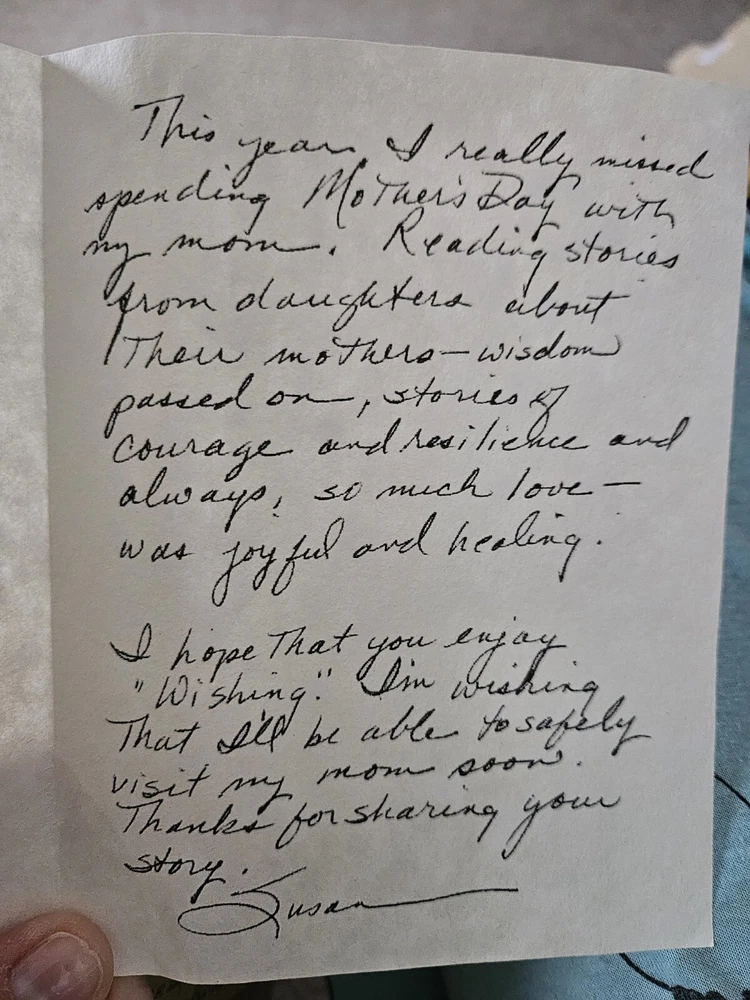 This year I really missed
spending Mother's Day with
my mom. Reading stories
from daughters about
their mothers—wisdom
passed on, stories of
courage and resilience and
always, so much love—
was joyful and healing.
I hope that you enjoy
"Wishing". I'm wishing
that I'll be able to safely
visit my mom soon.
Thanks for sharing your
story.
Susan